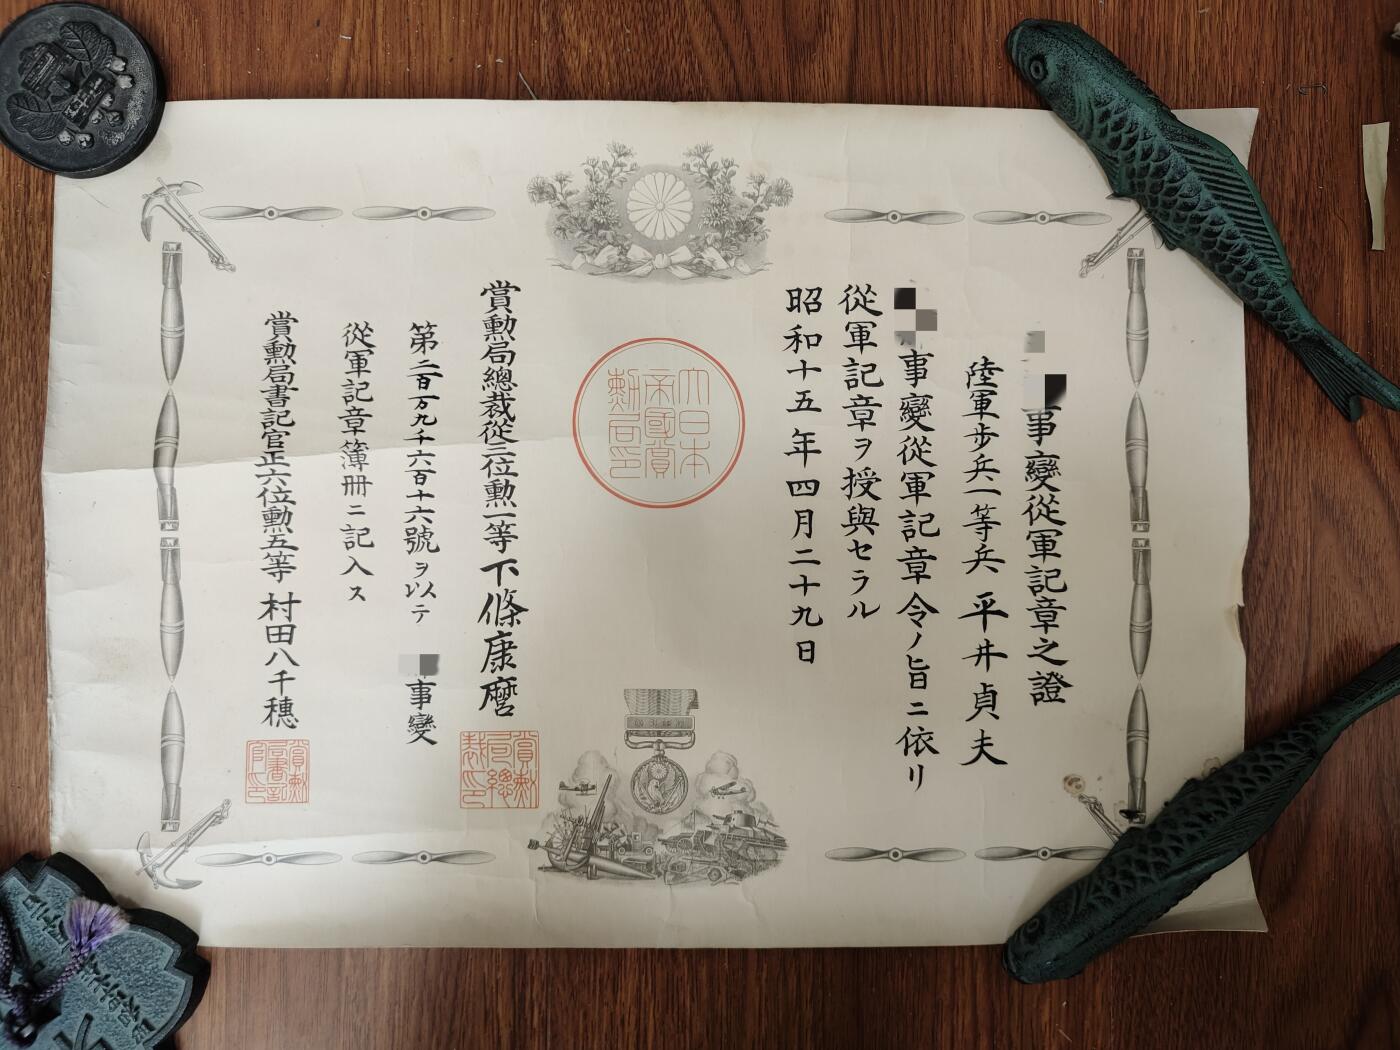 事變從軍記章之證
陸軍步兵一等兵 平井貞夫
事變從軍記章令ノ旨ニ依リ
從軍記章ヲ授與セラル
昭和十五年四月二十九日
大日本
帝國賞
勲局印
賞勲局總裁從三位勲一等 下條康麿
賞勲
局總
裁印
第二百万九千六百十六號ヲ以テ 事變
從軍記章簿冊ニ記入ス
賞勲局書記官正六位勲五等 村田八千穗
賞勲
局書記
官印